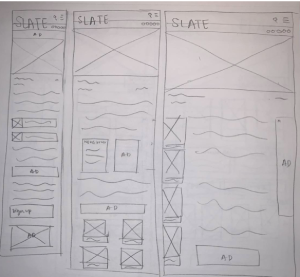 SLATE
AD
AD
sign up
AD
SLATE
AD
AD
SLATE
AD
AD